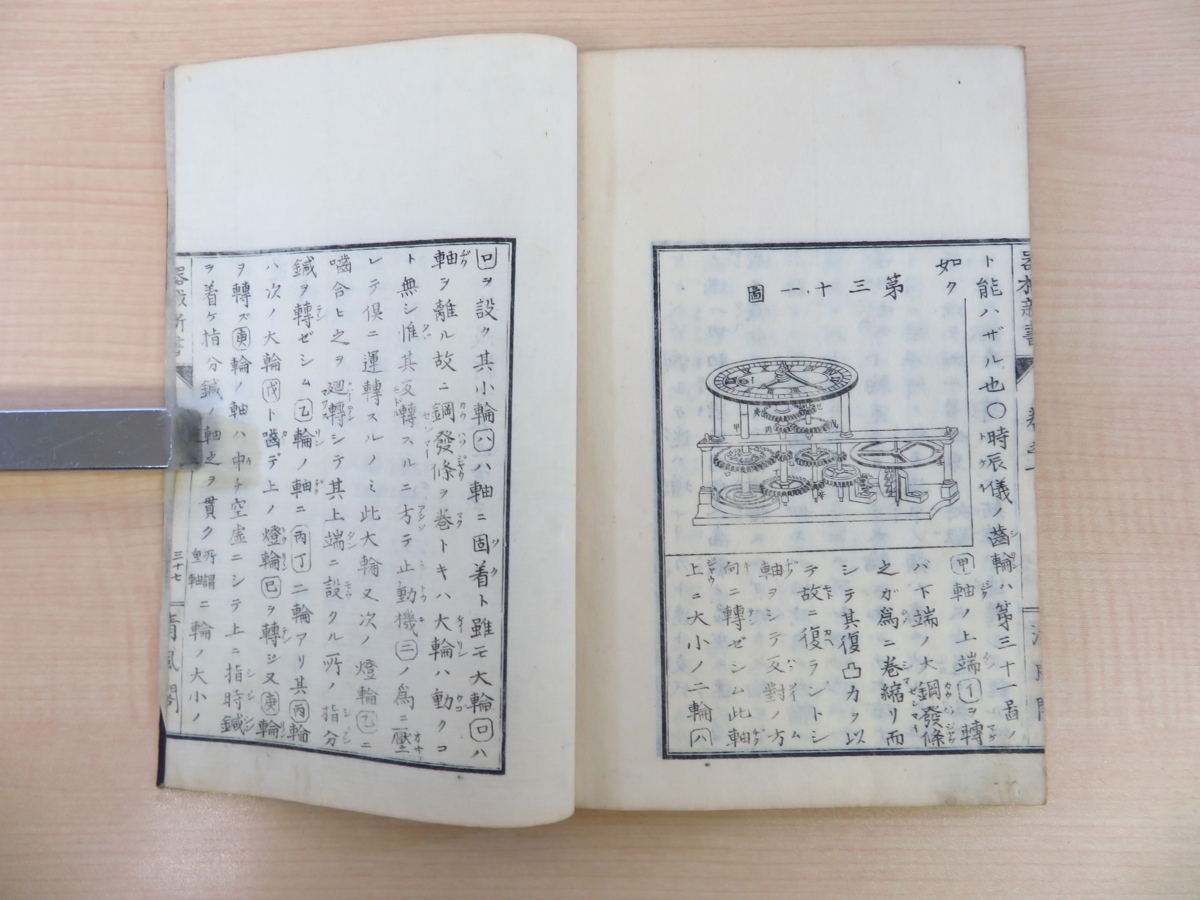 ト能ハザル也〇時辰儀ノ齒輪ハ第三十一啚ノ
如ク
第三十一圖
甲軸ノ上端イヲ轉
バ下端ノ大鋼發條
之ガ爲ニ巻縮リ而
シテ其復凸力ヲ以
テ故ニ復ラントシ
軸ヲシテ反對ノ方
向ニ轉ゼシム此軸
上ニ大小ノ二輪ハ
ロヲ設ク其小輪ハハ軸ニ固着ト雖モ大輪ロハ
軸ヲ離ル故ニ鋼發條ヲ巻トキハ大輪ハ動クコ
ト無シ惟其反轉スルニ方テ止動機ニノ爲ニ壓
レテ倶ニ運轉スルノミ此大輪又次ノ燈輪乙ニ
嚙合ヒ之ヲ廻轉シテ其上端ニ設クル所ノ指分
鍼ヲ轉ゼシム乙輪ノ軸ニ丙丁二輪アリ其丙輪
ハ次ノ大輪戊ト嚙デ上ノ燈輪巳ヲ轉ジ又庚輪
ヲ轉ズ庚輪ノ軸ハ中チ空虚ニシテ上ニ指時鍼
ヲ着ケ指分鍼ノ軸之ヲ貫ク所謂重軸ニ輪ノ大小ノ
三十七